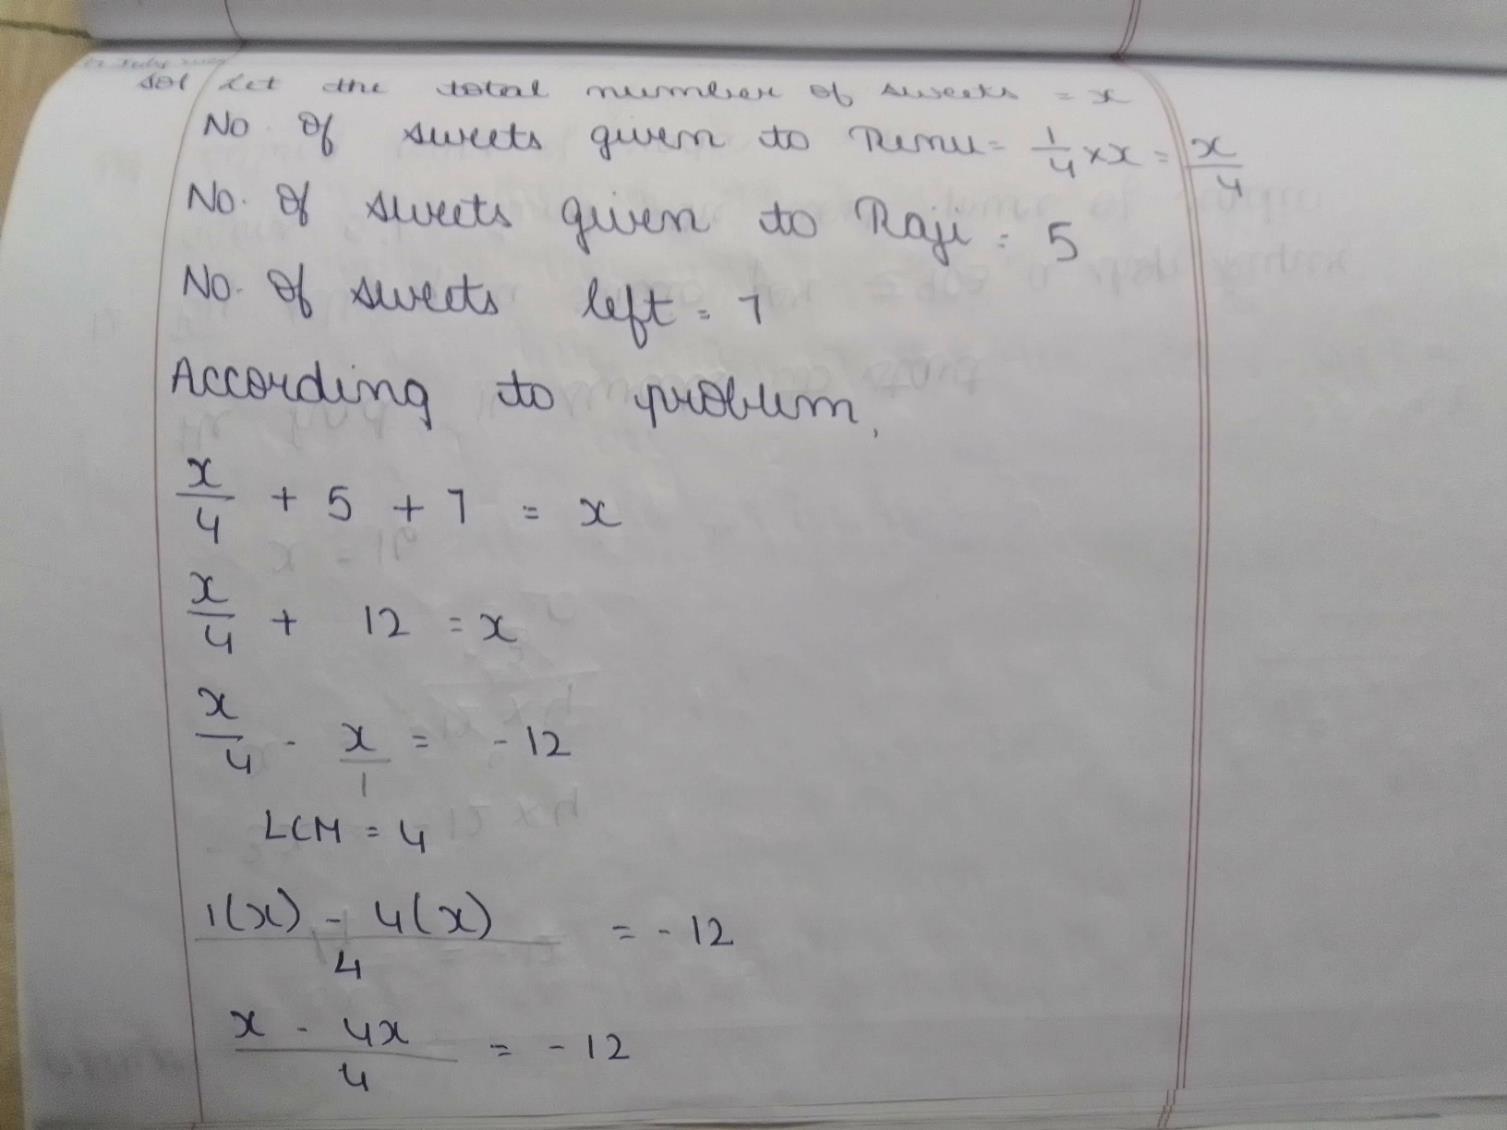 Sol Let the total number of sweets = x
No. of sweets given to Renu = 1/4 × x = x/4
No. of sweets given to Raji = 5
No. of sweets left = 7
According to problem,
x/4 + 5 + 7 = x
x/4 + 12 = x
x/4 - x/1 = -12
LCM = 4
1(x) - 4(x)/4 = -12
x - 4x/4 = -12